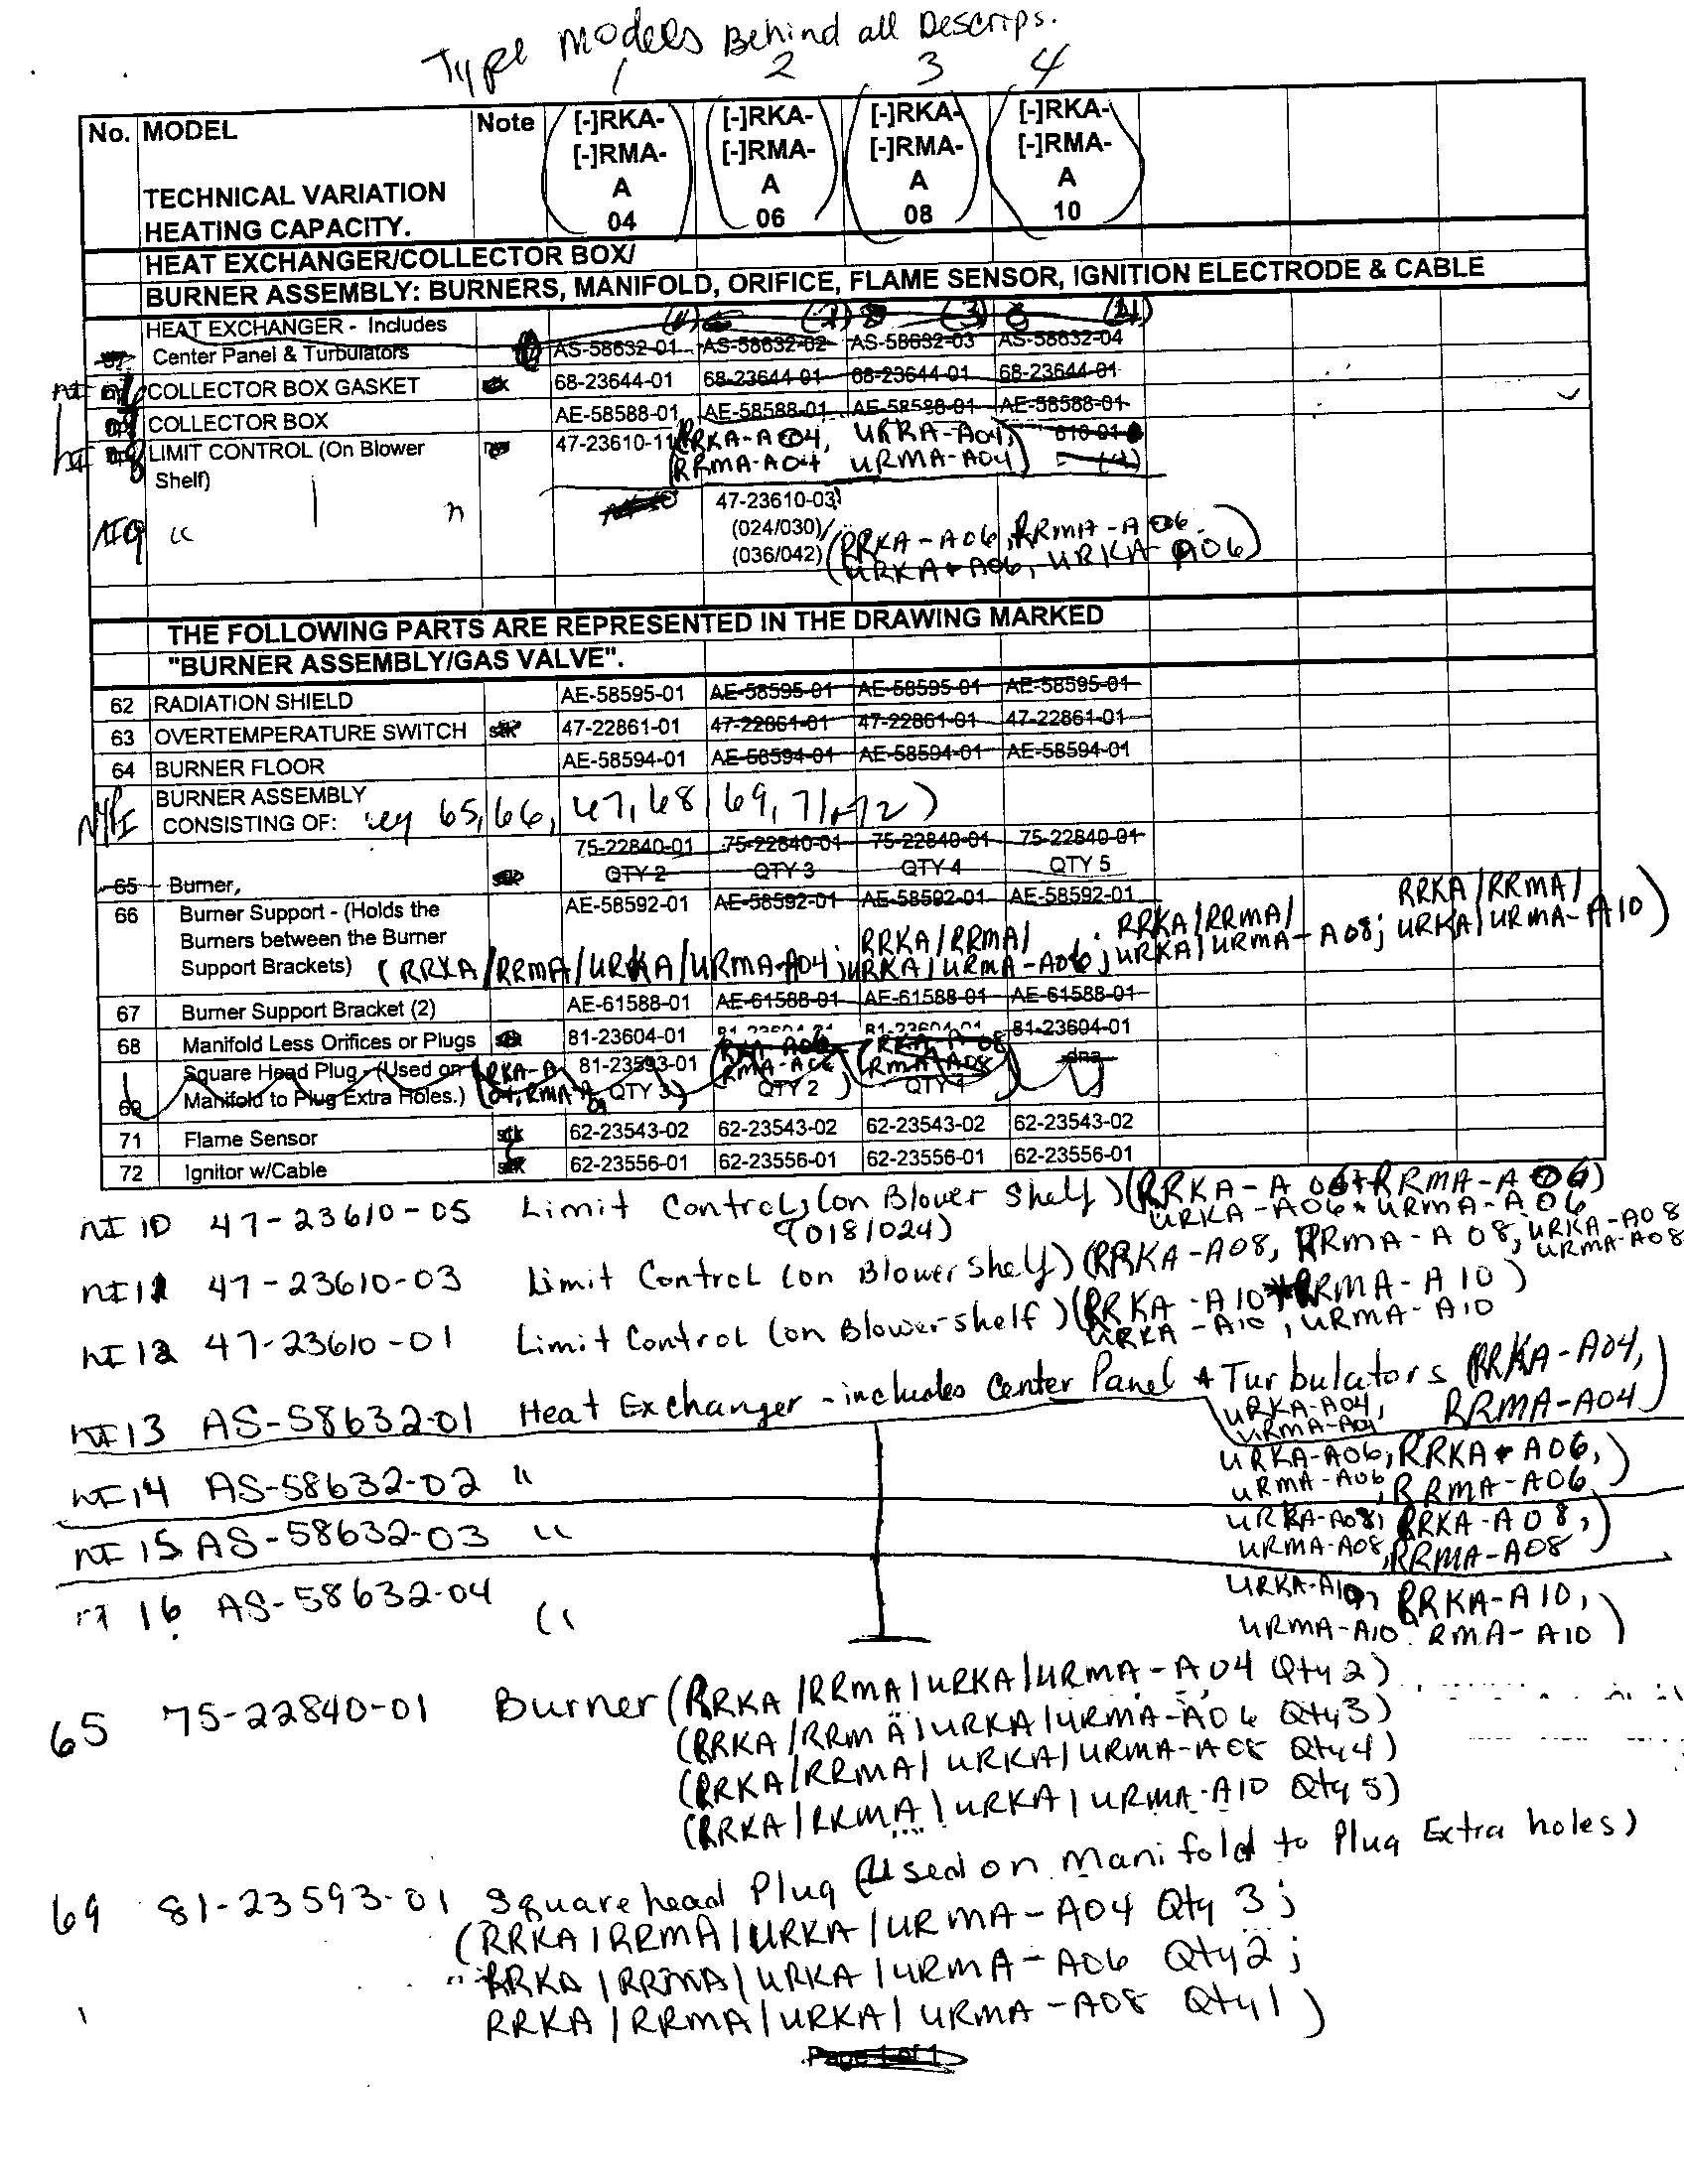 Type Models Behind all Descrips.
1 2 3 4
No. MODEL Note [-]RKA- [-]RKA- [-]RKA- [-]RKA-
[-]RMA- [-]RMA- [-]RMA- [-]RMA-
A A A A
TECHNICAL VARIATION
HEATING CAPACITY. 04 06 08 10
HEAT EXCHANGER/COLLECTOR BOX/
BURNER ASSEMBLY: BURNERS, MANIFOLD, ORIFICE, FLAME SENSOR, IGNITION ELECTRODE & CABLE
HEAT EXCHANGER - Includes (1) (2) (3) (4)
Center Panel & Turbulators AS-58632-01 AS-58632-02 AS-58632-03 AS-58632-04
NI 6 COLLECTOR BOX GASKET 68-23644-01 68-23644-01 68-23644-01 68-23644-01
COLLECTOR BOX AE-58588-01 AE-58588-01 AE-58588-01 AE-58588-01
NI 8 LIMIT CONTROL (On Blower 47-23610-11 (RRKA-A04, URKA-A04, 610-01
Shelf) RRMA-A04 URMA-A04) (4)
NI 9 " | " 47-23610-03
(024/030)/
(036/042) (RRKA-A06, RRMA-A06
URKA-A06, URKA-A06)
THE FOLLOWING PARTS ARE REPRESENTED IN THE DRAWING MARKED
"BURNER ASSEMBLY/GAS VALVE".
62 RADIATION SHIELD AE-58595-01 AE-58595-01 AE-58595-01 AE-58595-01
63 OVERTEMPERATURE SWITCH 47-22861-01 47-22861-01 47-22861-01 47-22861-01
64 BURNER FLOOR AE-58594-01 AE-58594-01 AE-58594-01 AE-58594-01
BURNER ASSEMBLY
CONSISTING OF: key 65, 66, 67, 68, 69, 71, 72)
75-22840-01 75-22840-01 75-22840-01 75-22840-01
65 Burner, QTY 2 QTY 3 QTY 4 QTY 5
66 Burner Support - (Holds the AE-58592-01 AE-58592-01 AE-58592-01 AE-58592-01
Burners between the Burner RRKA/RRMA/ RRKA/RRMA/ RRKA/RRMA/
Support Brackets) (RRKA/RRMA/URKA/URMA-A04; URKA/URMA-A06; URKA/URMA-A08; URKA/URMA-A10)
67 Burner Support Bracket (2) AE-61588-01 AE-61588-01 AE-61588-01 AE-61588-01
68 Manifold Less Orifices or Plugs 81-23604-01 81-23604-01 81-23604-01 81-23604-01
Square Head Plug - (Used on (RKA-A 81-23593-01 (RKA-A06 (RKA-A08 dna
69 Manifold to Plug Extra Holes.) 04, RMA-A QTY 3) RMA-A06 QTY 2) RMA-A08 QTY 1
71 Flame Sensor 62-23543-02 62-23543-02 62-23543-02 62-23543-02
72 Ignitor w/Cable 62-23556-01 62-23556-01 62-23556-01 62-23556-01
NI 10 47-23610-05 Limit Control, (on Blower Shelf) (RRKA-A 06 + RRMA-A 06)
(018/024) URKA-A06 + URMA-A06
NI 11 47-23610-03 Limit Control (on Blower Shelf) (RRKA-A08, RRMA-A 08, URKA-A08
URMA-A08
NI 12 47-23610-01 Limit Control (on Blower shelf) (RRKA-A10 RRMA-A10)
URKA-A10, URMA-A10
NI 13 AS-58632-01 Heat Exchanger - includes Center Panel + Turbulators (RRKA-A04,
URKA-A04, RRMA-A04)
URMA-A04
NI 14 AS-58632-02 " URKA-A06, RRKA A06,
URMA-A06, RRMA-A06)
NI 15 AS-58632-03 " URKA-A08, RRKA-A08,
URMA-A08, RRMA-A08)
NI 16 AS-58632-04 " URKA-A10, RRKA-A10,
URMA-A10 RMA-A10)
65 75-22840-01 Burner (RRKA/RRMA/URKA/URMA-A04 Qty 2)
(RRKA/RRMA/URKA/URMA-A06 Qty 3)
(RRKA/RRMA/URKA/URMA-A08 Qty 4)
(RRKA/RRMA/URKA/URMA-A10 Qty 5)
69 81-23593-01 Square head Plug (Used on Manifold to Plug Extra holes)
(RRKA/RRMA/URKA/URMA-A04 Qty 3;
RRKA/RRMA/URKA/URMA-A06 Qty 2;
RRKA/RRMA/URKA/URMA-A08 Qty 1)
Page 1 of 1